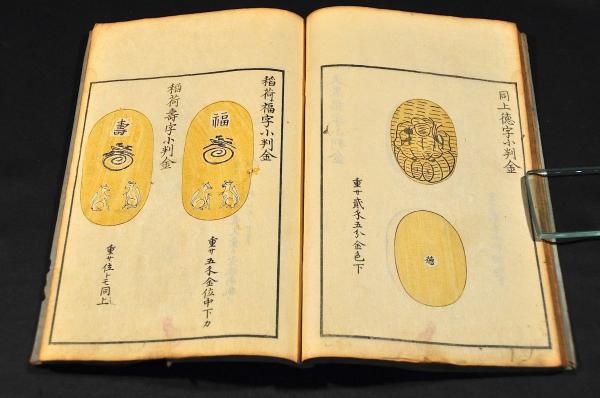 同上德字小判金
德
重サ貳匁五分金色下
稲荷福字小判金
福
重サ五匁金位中下カ
稲荷壽字小判金
壽
重サ住トモ同上